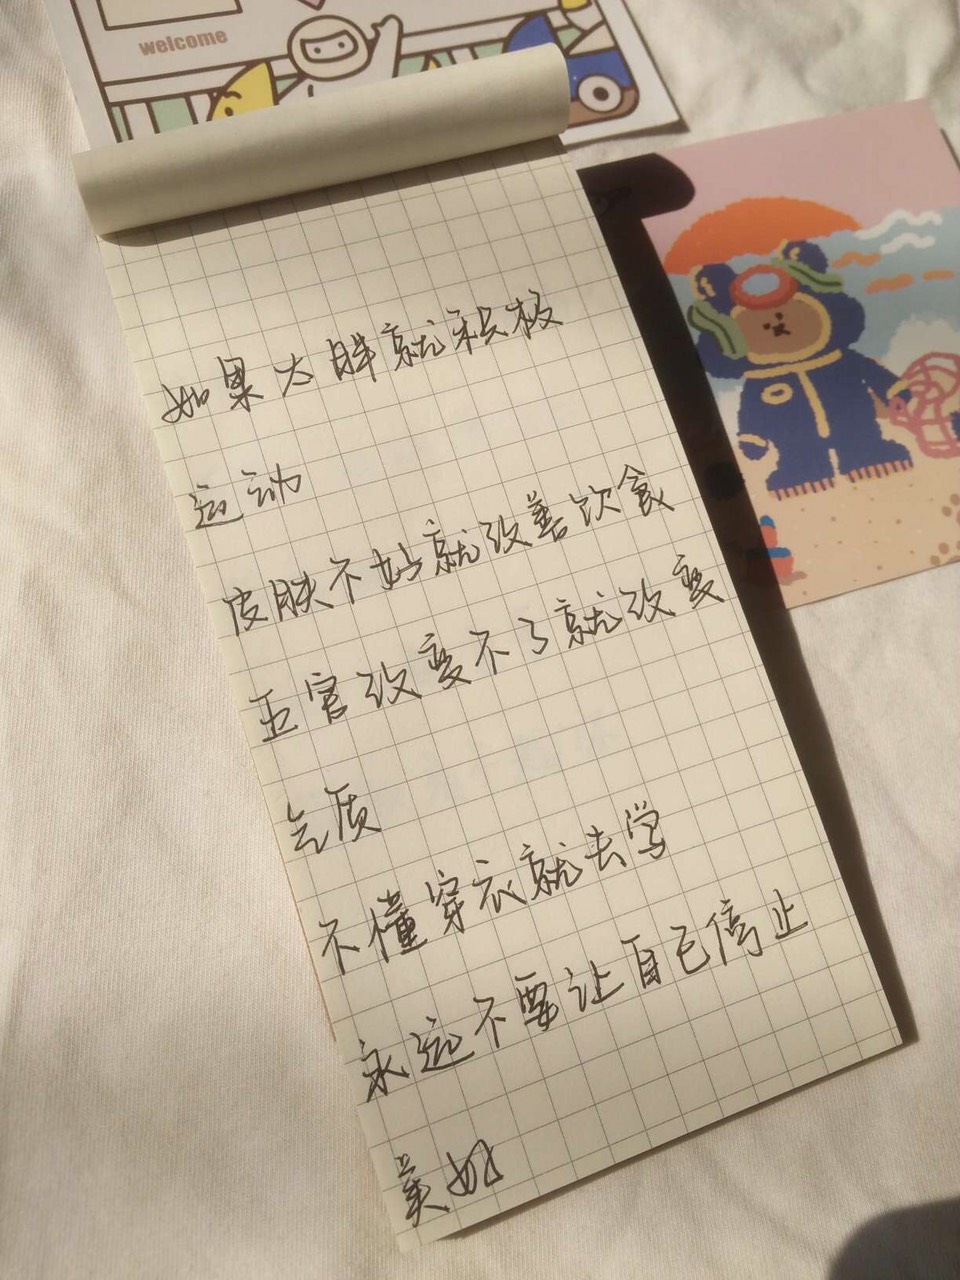 welcome
如果太胖就积极
运动
皮肤不好就改善饮食
五官改变不了就改变
气质
不懂穿衣就去学
永远不要让自己停止
美好